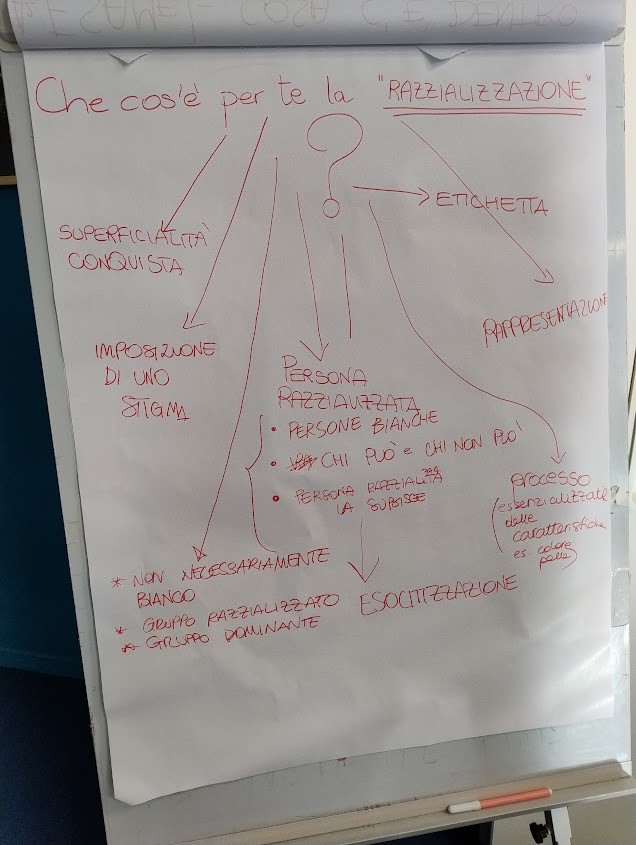 Che cos'è per te la "RAZZIALIZZAZIONE"
?
ETICHETTA
SUPERFICIALITÀ
CONQUISTA
RAPPRESENTAZIONE
IMPOSIZIONE
DI UNO
STIGMA
PERSONA
RAZZIALIZZATA
• PERSONE BIANCHE
• CHI PUÒ e CHI NON PUÒ
• PERSONA RAZZIALITÀ
LA SUBISCE
processo
(essenzializzate?
delle
caratteristiche
es colore
pelle)
* NON NECESSARIAMENTE
BIANCO
* GRUPPO RAZZIALIZZATO
* GRUPPO DOMINANTE
ESOCITIZZAZIONE